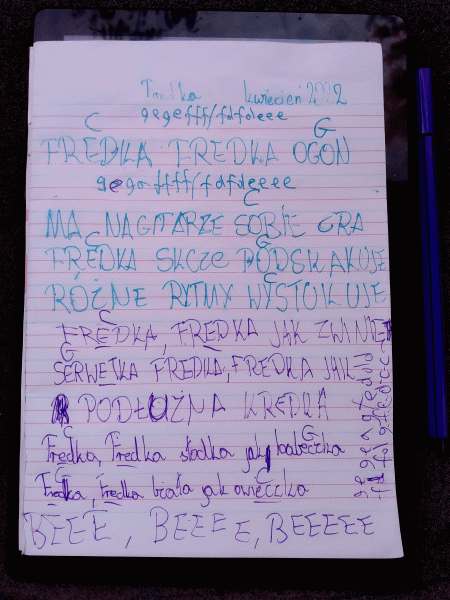 Fredka kwiecień 2022
gegefff/fdfdeee
C G
FREDKA FREDKA OGON
gegefffff/fdfdeeee
C
MA, NA GITARZE SOBIE GRA
C G
FREDKA SKCZE PODSKAKUJE
C
RÓŻNE RYTMY WYSTUKUJE
C
FREDKA, FREDKA JAK ZWINIĘTA
G
SERWETKA FREDKA, FREDKA JAK
PODŁUŻNA KREDKA
C G
Fredka, Fredka słodka jak babeczka
G C
Fredka, Fredka biała jak owieczka
BEEE, BEEEE, BEEEEE